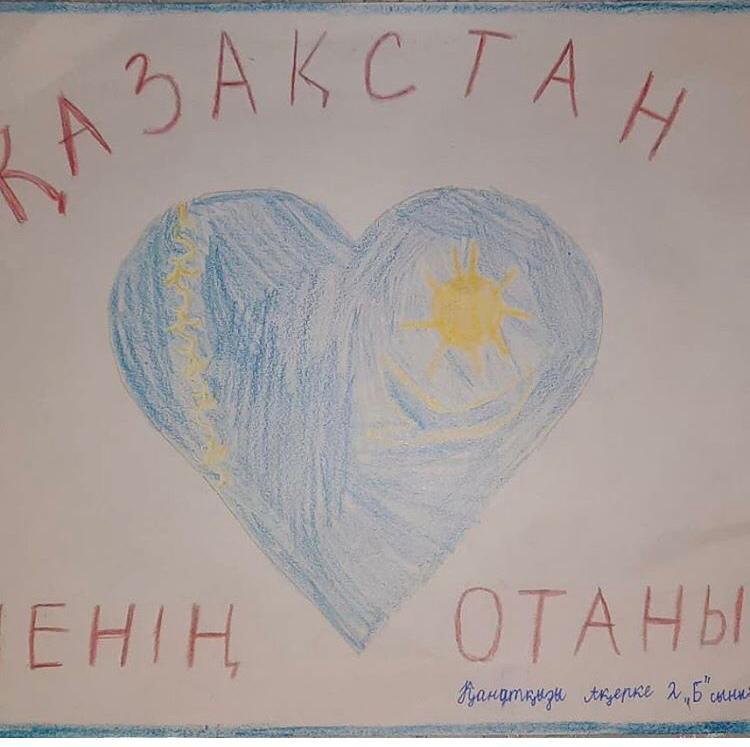 ҚАЗАҚСТАН
МЕНІҢ ОТАНЫ
Қанатқызы Ақерке 2 „Б" сынып